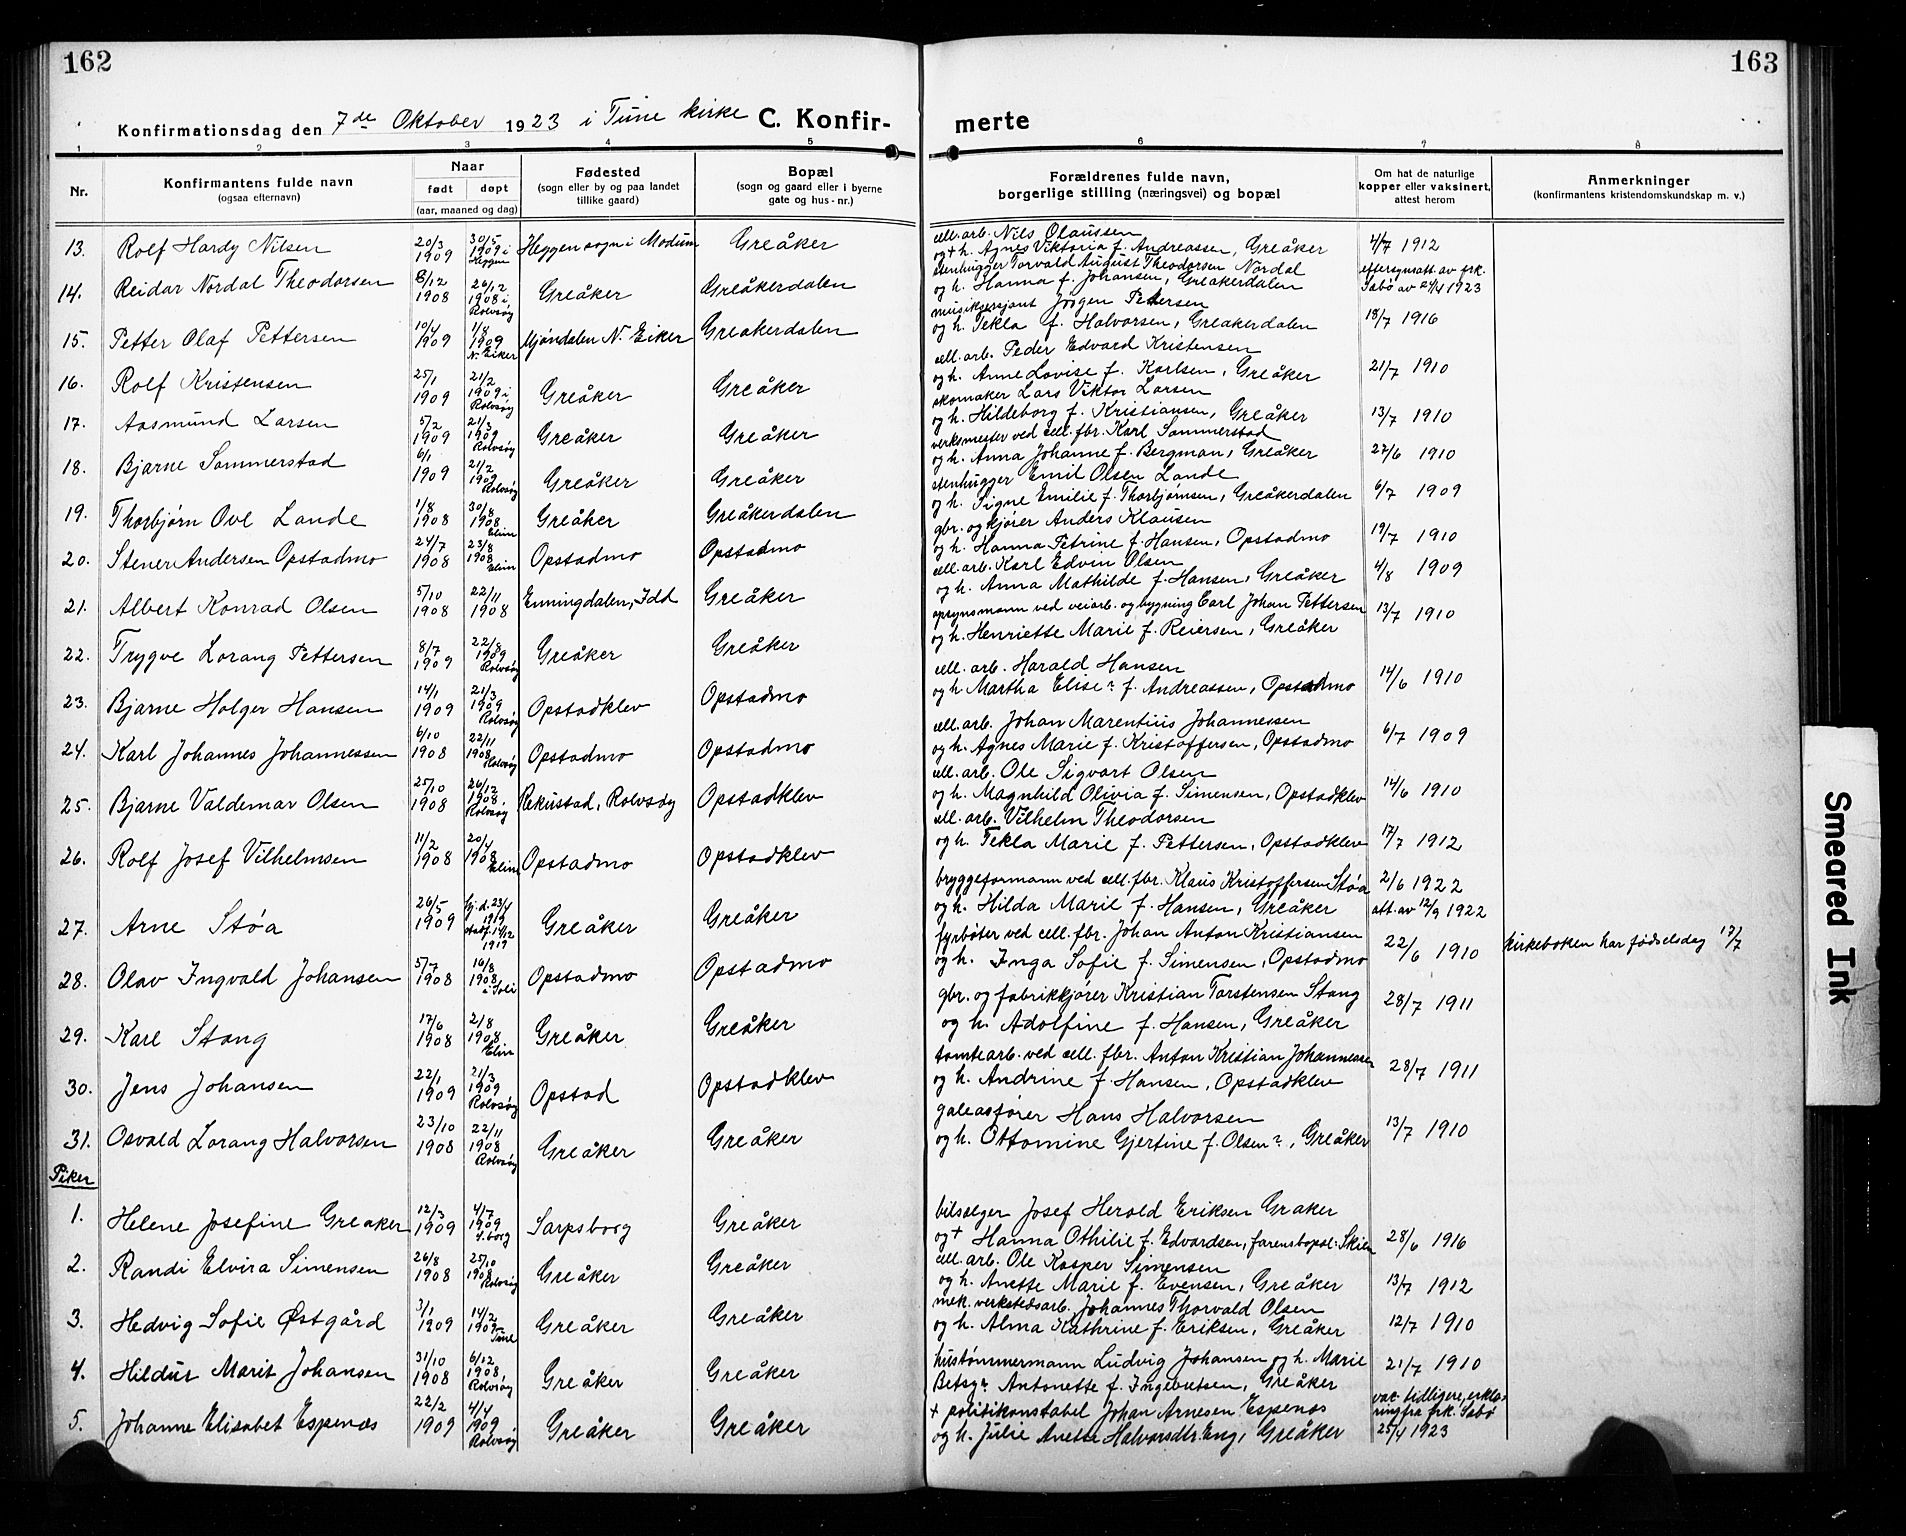 162
163
Konfirmationsdag den 7de Oktober 1923 i Tune kirke C. Konfir-
merte
1 2 3 4 5 6 7 8
Nr.
Konfirmantens fulde navn
(ogsaa efternavn)
Naar
født døpt
(aar, maaned og dag)
Fødested
(sogn eller by og paa landet
tillike gaard)
Bopæl
(sogn og gaard eller i byerne
gate og hus-nr.)
Forældrenes fulde navn,
borgerlige stilling (næringsvei) og bopæl
Om hat de naturlige
kopper eller vaksinert,
attest herom
Anmerkninger
(konfirmantens kristendomskundskap m. v.)
13. Rolf Hardy Nilsen 20/3 1909 30/5 1909 i Heggen Heggen sogn i Modum Greåker
cell. arb. Nils Olaussen
og + h. Agnes Viktoria f. Andreassen, Greåker 4/7 1912
14. Reidar Nordal Theodorsen 8/12 1908 26/12 1908 i Rolvsøy Greåker Greåkerdalen
stenhugger Torvald August Theodorsen Nordal
og h. Hanna f. Johansen, Greåkerdalen
eftersynsatt. av frk.
Sabø av 24/4 1923
15. Petter Olaf Pettersen 10/4 1909 1/8 1909 N. Eiker Mjøndalen N. Eiker Greåkerdalen
musiksersjant Jörgen Pettersen
og h. Tekla f. Halvorsen, Greåkerdalen 18/7 1916
16. Rolf Kristensen 25/1 1909 21/2 1909 i Rolvsøy Greåker Greåker
cell. arb. Peder Edvard Kristensen
og h. Anne Lovise f. Karlsen, Greåker 21/7 1910
17. Aasmund Larsen 5/2 1909 21/3 1909 Rolvsøy Greåker Greåker
skomaker Lars Viktor Larsen
og h. Hildeborg f. Kristiansen, Greåker 13/7 1910
18. Bjarne Sommerstad 6/1 1909 21/2 1909 Rolvsøy Greåker Greåker
verksmester ved cell. fbr. Karl Sommerstad
og h. Anna Johanne f. Bergman, Greåker 27/6 1910
19. Thorbjørn Ove Lande 1/8 1908 30/8 1908 Elim Greåker Greåkerdalen
stenhugger Emil Olsen Lande
og h. Signe Emilie f. Thorbjørnsen, Greåkerdalen 6/7 1909
20. Stener Andersen Opstadmo 24/7 1908 23/8 1908 Elim Opstadmo Opstadmo
gbr. og kjører Anders Klausen
og h. Hanna Petrine f. Hansen, Opstadmo 19/7 1910
21. Albert Konrad Olsen 5/10 1908 22/11 1908 Enningdalen, Idd Greåker
cell. arb. Karl Edvin Olsen
og h. Anna Mathilde f. Hansen, Greåker 4/8 1909
22. Trygve Lorang Pettersen 8/7 1909 22/8 1909 Rolvsøy Greåker Greåker
opsynsmann ved veiarb. og bygning Carl Johan Pettersen
og h. Henriette Marie f. Reiersen, Greåker 13/7 1910
23. Bjarne Holger Hansen 14/1 1909 21/3 1909 Rolvsøy Opstadklev Opstadmo
cell. arb. Harald Hansen
og h. Martha Elise? f. Andreassen, Opstadmo 14/6 1910
24. Karl Johannes Johannessen 6/10 1908 22/11 1908 Rolvsøy Opstadmo Opstadmo
cell. arb. Johan Marentius Johannessen
og h. Agnes Marie f. Kristoffersen, Opstadmo 6/7 1909
25. Bjarne Valdemar Olsen 25/10 1908 26/12 1908 Rolvsøy Rekustad, Rolvsøy Opstadklev
cell. arb. Ole Sigvart Olsen
og h. Magnhild Olivia f. Simensen, Opstadklev 14/6 1910
26. Rolf Josef Vilhelmsen 11/2 1908 20/4 1908 Elim Opstadmo Opstadklev
cell. arb. Vilhelm Theodorsen
og h. Tekla Marie f. Pettersen, Opstadklev 17/7 1912
27. Arne Støa 26/5 1909 hj. d. 23/4 1919 stadf. 14/12 1919 Greåker Greåker
bryggeformann ved cell. fbr. Klaus Kristoffersen Støa 2/6 1922
og h. Hilda Marie f. Hansen, Greåker att. av 12/9 1922
28. Olav Ingvald Johansen 5/7 1908 16/8 1908 i Soli Opstadmo Opstadmo
fyrbøter ved cell. fbr. Johan Anton Kristiansen
og h. Inga Sofie f. Simensen, Opstadmo 22/6 1910 kirkeboken har fødselsdag 17/7
29. Karl Stang 17/6 1908 2/8 1908 Elim Greåker Greåker
gbr. og fabrikkjører Kristian Torstensen Stang
og h. Adolfine f. Hansen, Greåker 28/7 1911
30. Jens Johansen 22/1 1909 21/3 1909 Rolvsøy Opstad Opstadklev
tomtearb. ved cell. fbr. Anton Kristian Johannessen
og h. Andrine f. Hansen, Opstadklev 28/7 1911
31. Osvald Lorang Halvorsen 23/10 1908 22/11 1908 Rolvsøy Greåker Greåker
galeasfører Hans Halvorsen
og h. Ottomine Gjertine f. Olsen?, Greåker 13/7 1910
Piker
1. Helene Josefine Greaker 12/3 1909 4/7 1909 S.borg Sarpsborg Greåker
bilsælger Josef Herold Eriksen Graker
og + Hanna Othilie f. Edvardsen, farens bopæl: Skien 28/6 1916
2. Randi Elvira Simensen 26/8 1908 25/10 1908 Rolvsøy Greåker Greåker
cell. arb. Ole Kasper Simensen
og h. Anette Marie f. Evensen, Greåker 13/7 1912
3. Hedvig Sofie Østgård 3/1 1909 14/2 1909 Tune Greåker Greåker
mek. verkstedsarb. Johannes Thorvald Olsen
og h. Alma Kathrine f. Eriksen, Greåker 12/7 1910
4. Hildur Marie Johansen 31/10 1908 6/12 1908 Rolvsøy Greåker Greåker
hustømmermann Ludvig Johansen og h. Marie
Betsy? Antonette f. Ingebretsen, Greåker 21/7 1910
5. Johanne Elisabet Espenæs 22/2 1909 4/4 1909 Rolvsøy Greåker Greåker
+ politikonstabel Johan Arnesen Espenæs
og h. Julie Anette Halvorsdtr. Eng, Greåker
vac. tidligere, erklæ-
ring fra frk. Sabø
25/4 1923
Smeared Ink